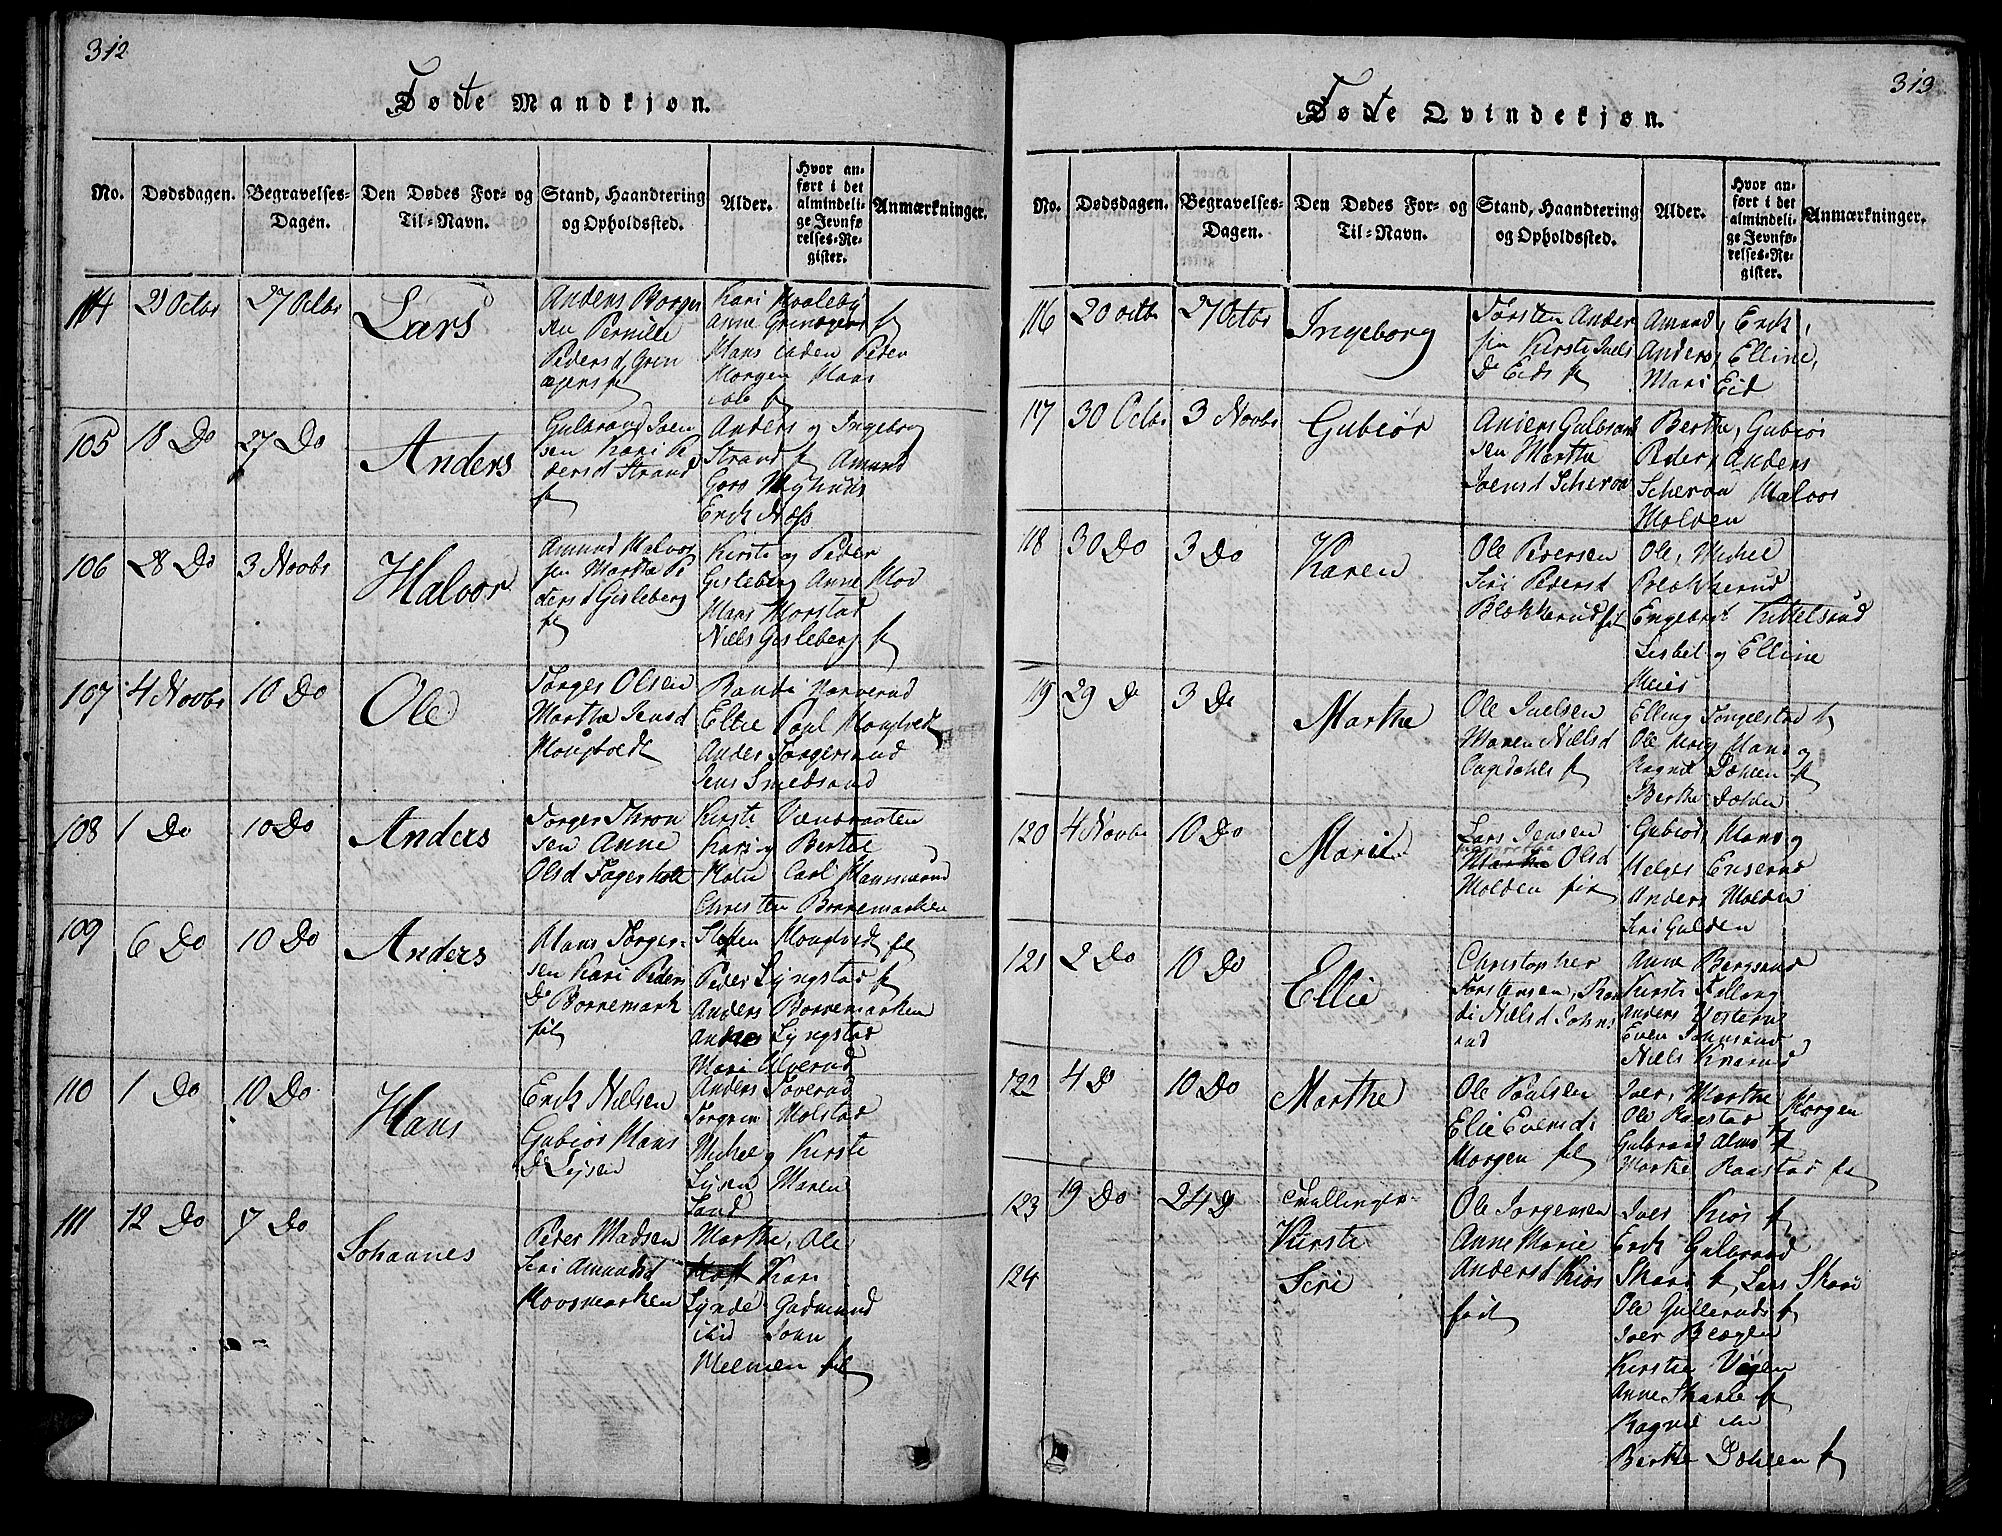 312
Fødte Mandkjøn.
No. Dødsdagen. Begravelses-Dagen. Den Dødes For- og Til-Navn. Stand, Haandtering og Opholdssted. Alder. Hvor anført i det almindelige Jevnførelses-Register. Anmærkninger.
114 21 Octbr 27 Octbr Lars
Anders Borger
sen Pernille
Pedersd Grin
agers
Kari Hvaleby
Anne Grinager
Hans Peder
Horgen Hans
105 18 Do 27 Do Anders
Gulbrand Iver
sen Kari Pe
dersd Strand
Anders og Ingeborg
Strand Amund
Goro Myhrus
Erik Næss
106 28 Do 3 Novbr Halvor
Amund Halvor
sen Marthe Pe
dersd Gisleberg
Kirsti og Peder
Gisleberg Anne Mod
Hans Morstad
Niels Gisleberg
107 4 Novbr 10 Do Ole
Torger Olsen
Marthe Jensd
Hougtvedt
Randi Harverud
Eltie Poul Hougtvedt
Anders Torgersrud
Jens Smedsrud
108 1 Do 10 Do Anders
Torger Thron
sen Anne
Olsd Fagerholt
Kirsti Venbraaten
Kari og Berthe
Molu Carl Hammerud
Christen Borremarken
109 6 Do 10 Do Anders
Hans Torger-
sen Kari Peders
D Borremark
Steffen Hougtvedt
Peder Lyngstad
Anders Borremarken
Andres Lyngstad
Mari Ulverud
110 1 Do 10 Do Hans
Erik Nielsen
Gubiør Hans
D Lysen
Anders Toverud
Torgrim Molstad
Michel og Kirsti
Lysen Maren
Land
111 12 Do 17 Do Johannes
Peder Madsen
Siri Amundsd
Hovsmarken
Marthe, Ole
Kari
Lynde Gudmund
Eid John
Melmen
313
Fødte Qvindekjøn.
No. Dødsdagen. Begravelses-Dagen. Den Dødes For- og Til-Navn. Stand, Haandtering og Opholdssted. Alder. Hvor anført i det almindelige Jevnførelses-Register. Anmærkninger.
116 20 octbr 27 Octbr Ingeborg
Torsten Ander
sen Kirsti Iuels
D Eids
Amund, Erik,
Anders, Elline,
Mari Eid
117 30 Octbr 3 Novbr Gubiør
Anders Gulbrand
sen Marthe
Iversd Scherva
Berthe, Gubiør
Peder, Anders
Scherva Halvor
Molden
118 30 Do 3 Do Karen
Ole Iversen
Siri Pedersd
Blokkerud
Ole, Michel
Blokkerud
Engebret Kittelsrud
Lisbet og Elline
Meier
119 29 D 3 Do Marthe
Ole Iuelsen
Maren Nielsd
Engedahls
Elling Tongelstad
Ole Hoeg Hans og
Ragnil Dæhlen
Berthe Dæhlen
120 4 Novbr 10 Do Marie
Lars Jensen
Marthe Olsd
Molden
Gubiør, Hans og
Helger Enserud
Anders Molden
Siri Gulden
121 2 Do 10 Do Ellie
Christopher
Torstensen, Ran
di Nielsd Johns
rud
Anne Bergsrud
Kirsti Fallang
Anders Hosterud
Even Johnsrud
Niels Knarud
122 4 D 10 Do Marthe
Ole Poulsen
Elie Evensd
Horgen
Iver, Marthe Horgen
Ole Raastad
Gulbrand Alm
Marthe Raastad
123 19 Do 24 D Tvillinger
Kirsti
124 Siri
Ole Jorgensen
Anne Marie
Andersd Kiøs
født
Iver Kiøs
Erik Gulbrand
Skari Lars Skari
Ole Gullerud
Iver Blegen
Kirsten Vøien
Anne Skarie
Ragnil
Berthe Dæhlen